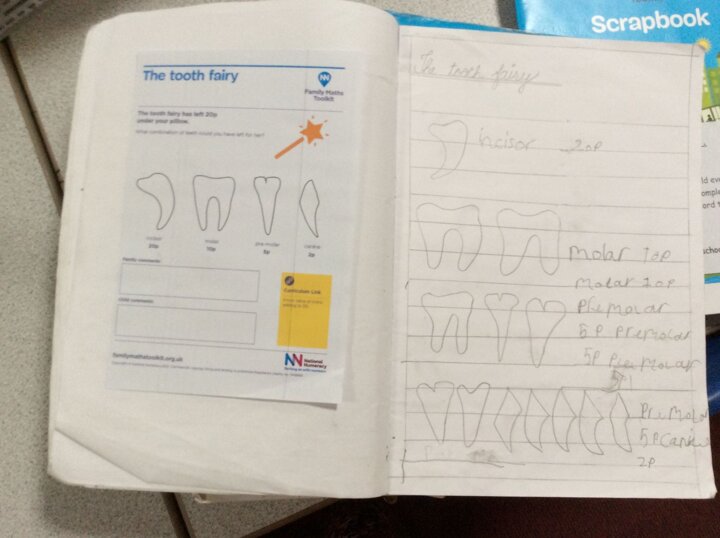 The tooth fairy
NN
Family Maths
Toolkit
The tooth fairy has left 20p
under your pillow.
What combination of teeth could you have left for her?
incisor
20p
molar
10p
pre-molar
5p
canine
2p
Family comments:
Child comments:
Curriculum Link
familymathstoolkit.org.uk
NN National
Numeracy
The tooth fairy
incisor 20p
molar 10p
molar 10p
Premolar
5p Premolar
5p Premolar
5p
Premolar
5p canine
2p
Scrapbook